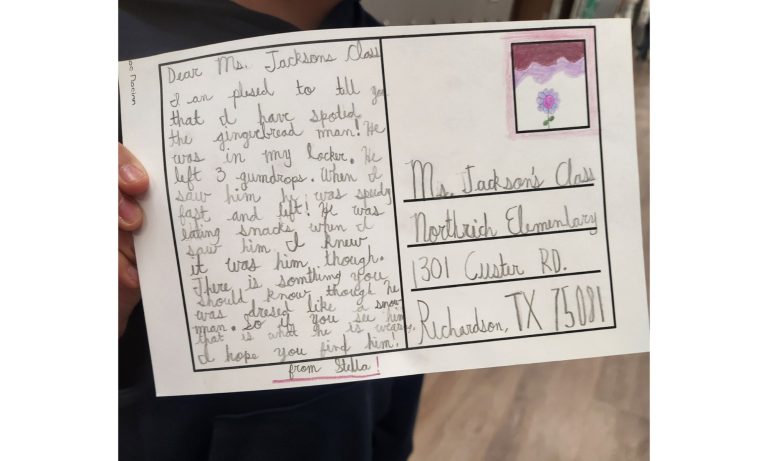 Dear Ms. Jacksons Class
I an plesed to till you
that I have spotid
the gingerbread man! He
was in my locker. He
left 3 gumdrops. When I
saw him he was speedy
fast and left! He was
eating snacks when I
saw him I knew
it was him though.
There is somthing you
should know though he
was dresed like a snow
man. So if you see him
that is what he is wearing.
I hope you find him!
from Stella!
Ms. Jackson's Class
Northrich Elementary
1301 Custer RD.
Richardson, TX 75081